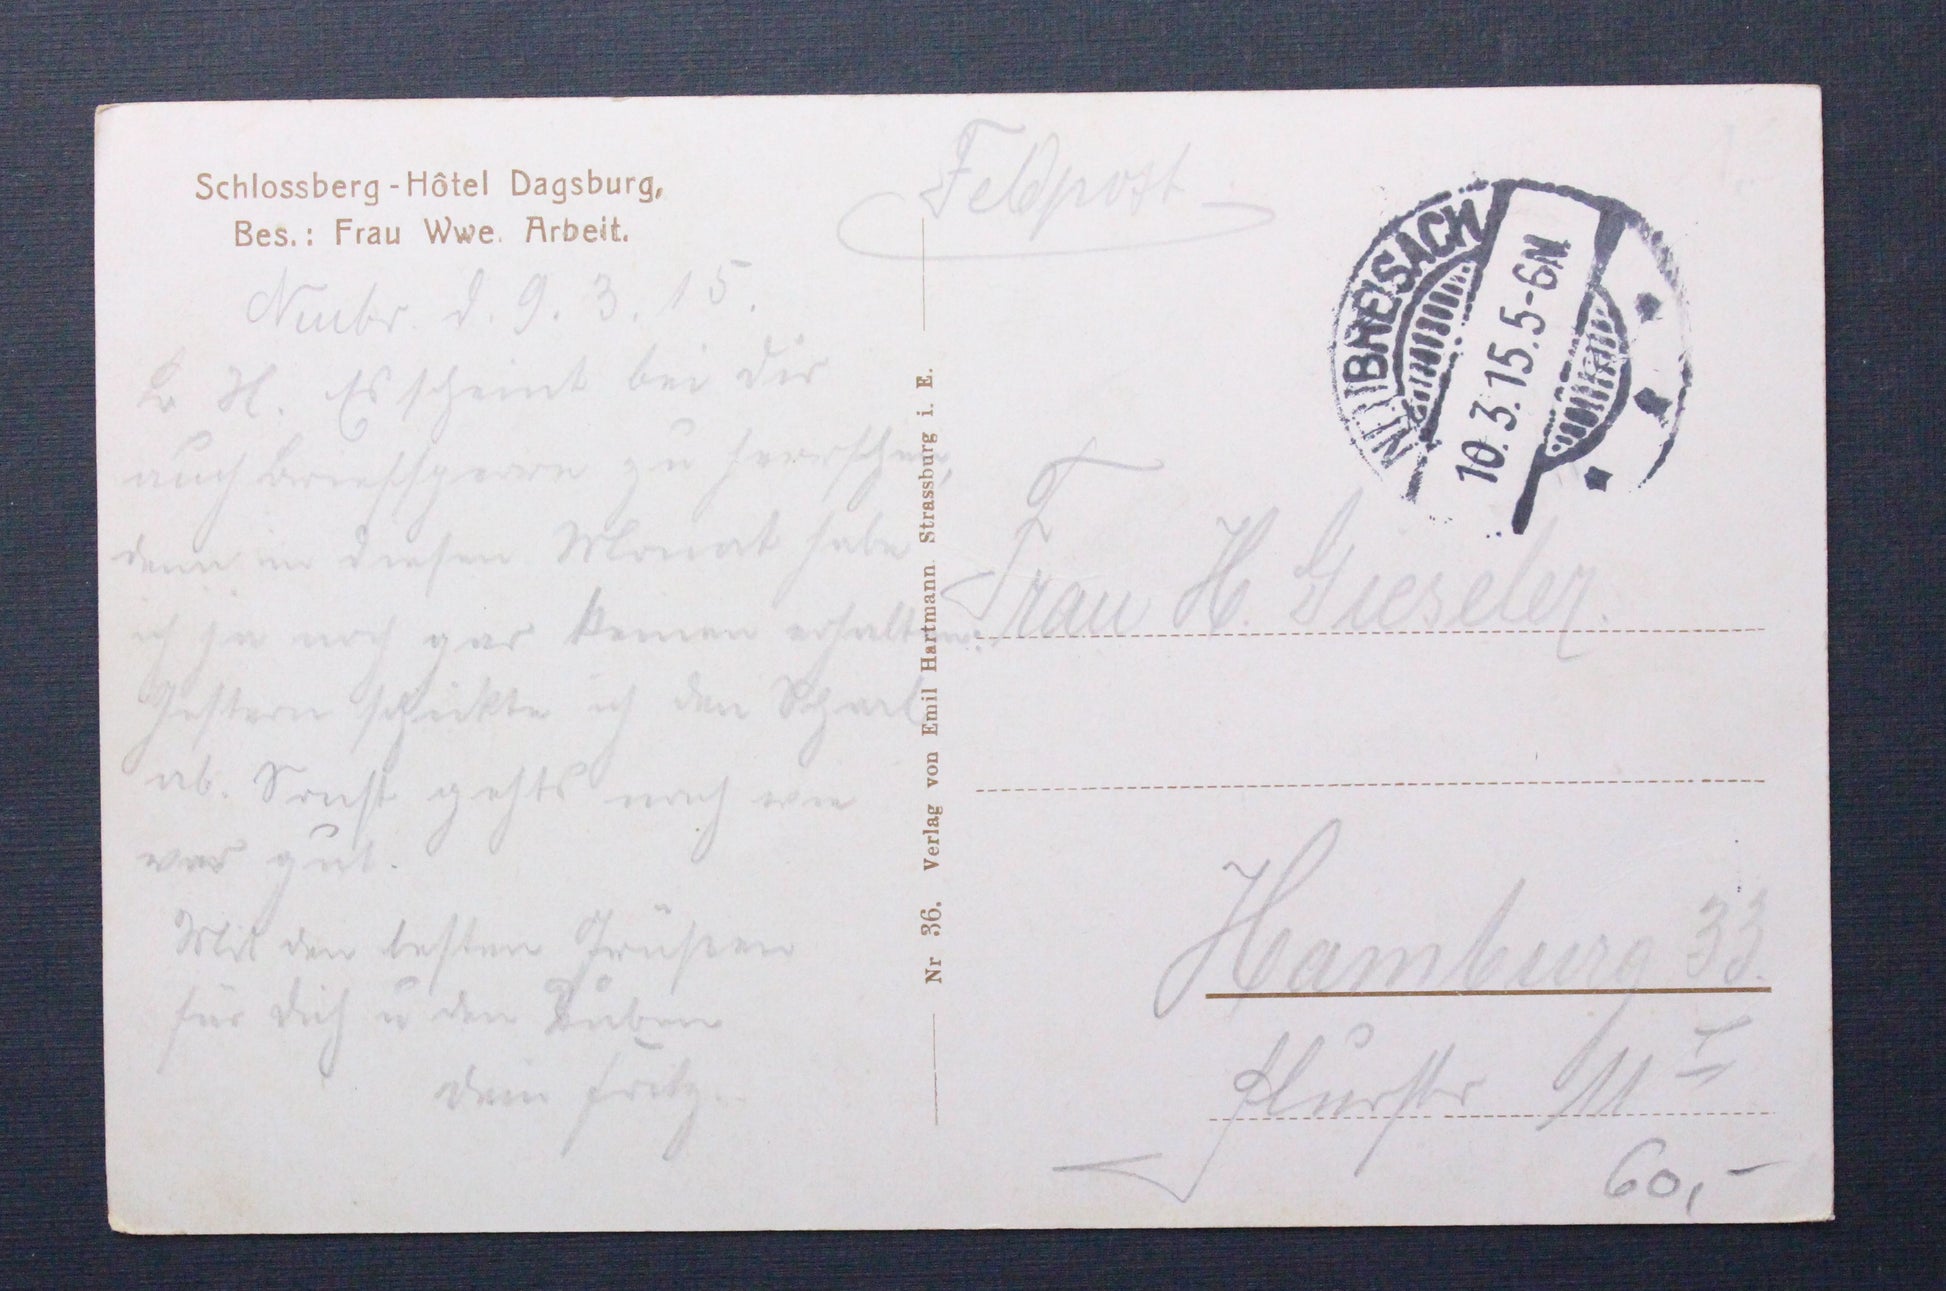 Schlossberg-Hôtel Dagsburg,
Bes.: Frau Wwe. Arbeit.
Feldpost
NEUBREISACH
10.3.15.5-6N
Neubr. d. 9.3.15.
L. H. Es scheint bei Dir
auch Briefsperre zu herrschen,
denn in diesen Monat habe
ich ja noch gar keinen erhalten.
Gestern schickte ich den Schal
ab. Sonst gehts noch wie
vor gut.
Mit den besten Grüßen
für Dich u den Buben
Dein Fritz.
Nr 36. Verlag von Emil Hartmann Strassburg i. E.
Frau H. Gieseler.
Hamburg 33.
Flurstr 11 I
60,-